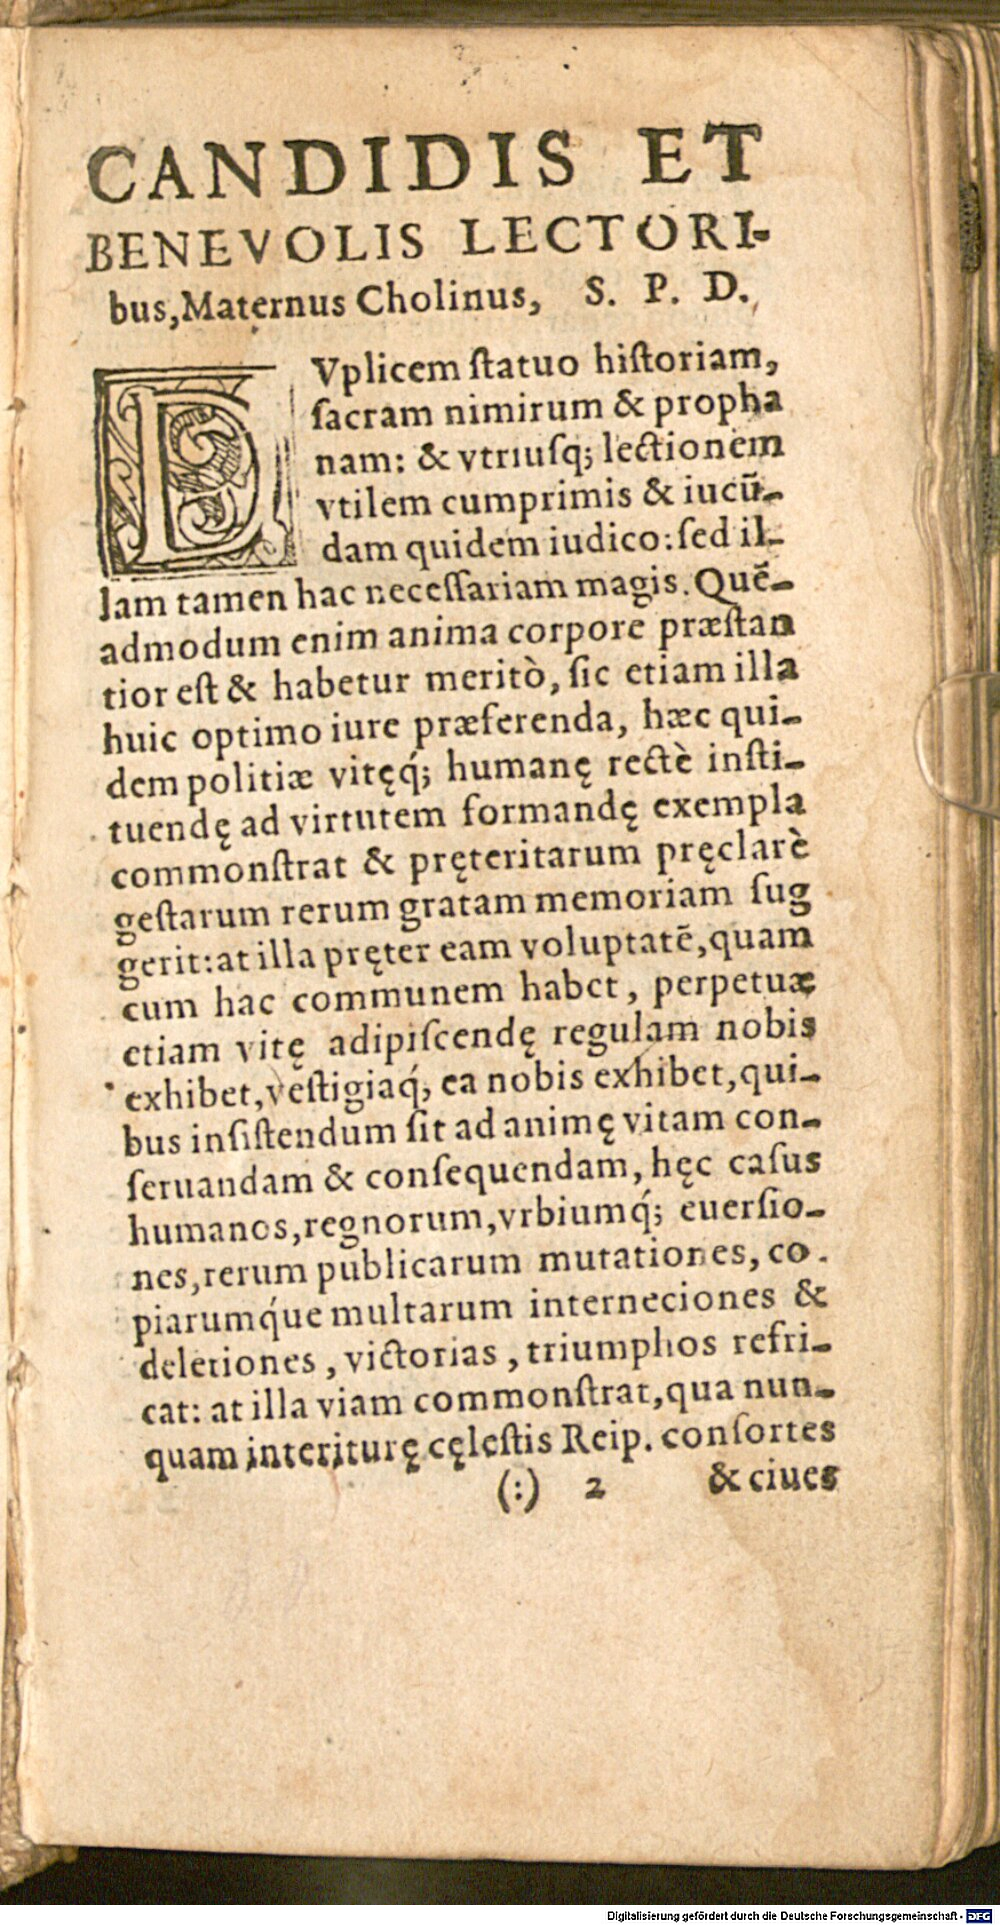 CANDIDIS ET
BENEVOLIS LECTORI-
bus, Maternus Cholinus, S. P. D.
DVplicem ſtatuo hiſtoriam,
ſacram nimirum & propha
nam: & vtriuſq; lectionem
vtilem cumprimis & iucū-
dam quidem iudico: ſed il-
lam tamen hac neceſſariam magis. Quē-
admodum enim anima corpore præſtan
tior eſt & habetur meritò, ſic etiam illa
huic optimo iure præferenda, hæc qui-
dem politiæ vitęq́; humanę rectè inſti-
tuendę ad virtutem formandę exempla
commonſtrat & pręteritarum pręclarè
geſtarum rerum gratam memoriam ſug
gerit: at illa pręter eam voluptatē, quam
cum hac communem habet, perpetuæ
etiam vitę adipiſcendę regulam nobis
exhibet, veſtigiaq́; ea nobis exhibet, qui-
bus inſiſtendum ſit ad animę vitam con-
ſeruandam & conſequendam, hęc caſus
humanos, regnorum, vrbiumq́; euerſio-
nes, rerum publicarum mutationes, co-
piarumq́ue multarum interneciones &
deletiones, victorias, triumphos refri-
cat: at illa viam commonſtrat, qua nun-
quam interiturę cęleſtis Reip. conſortes
(:) 2 & ciues
Digitalisierung gefördert durch die Deutsche Forschungsgemeinschaft - DFG